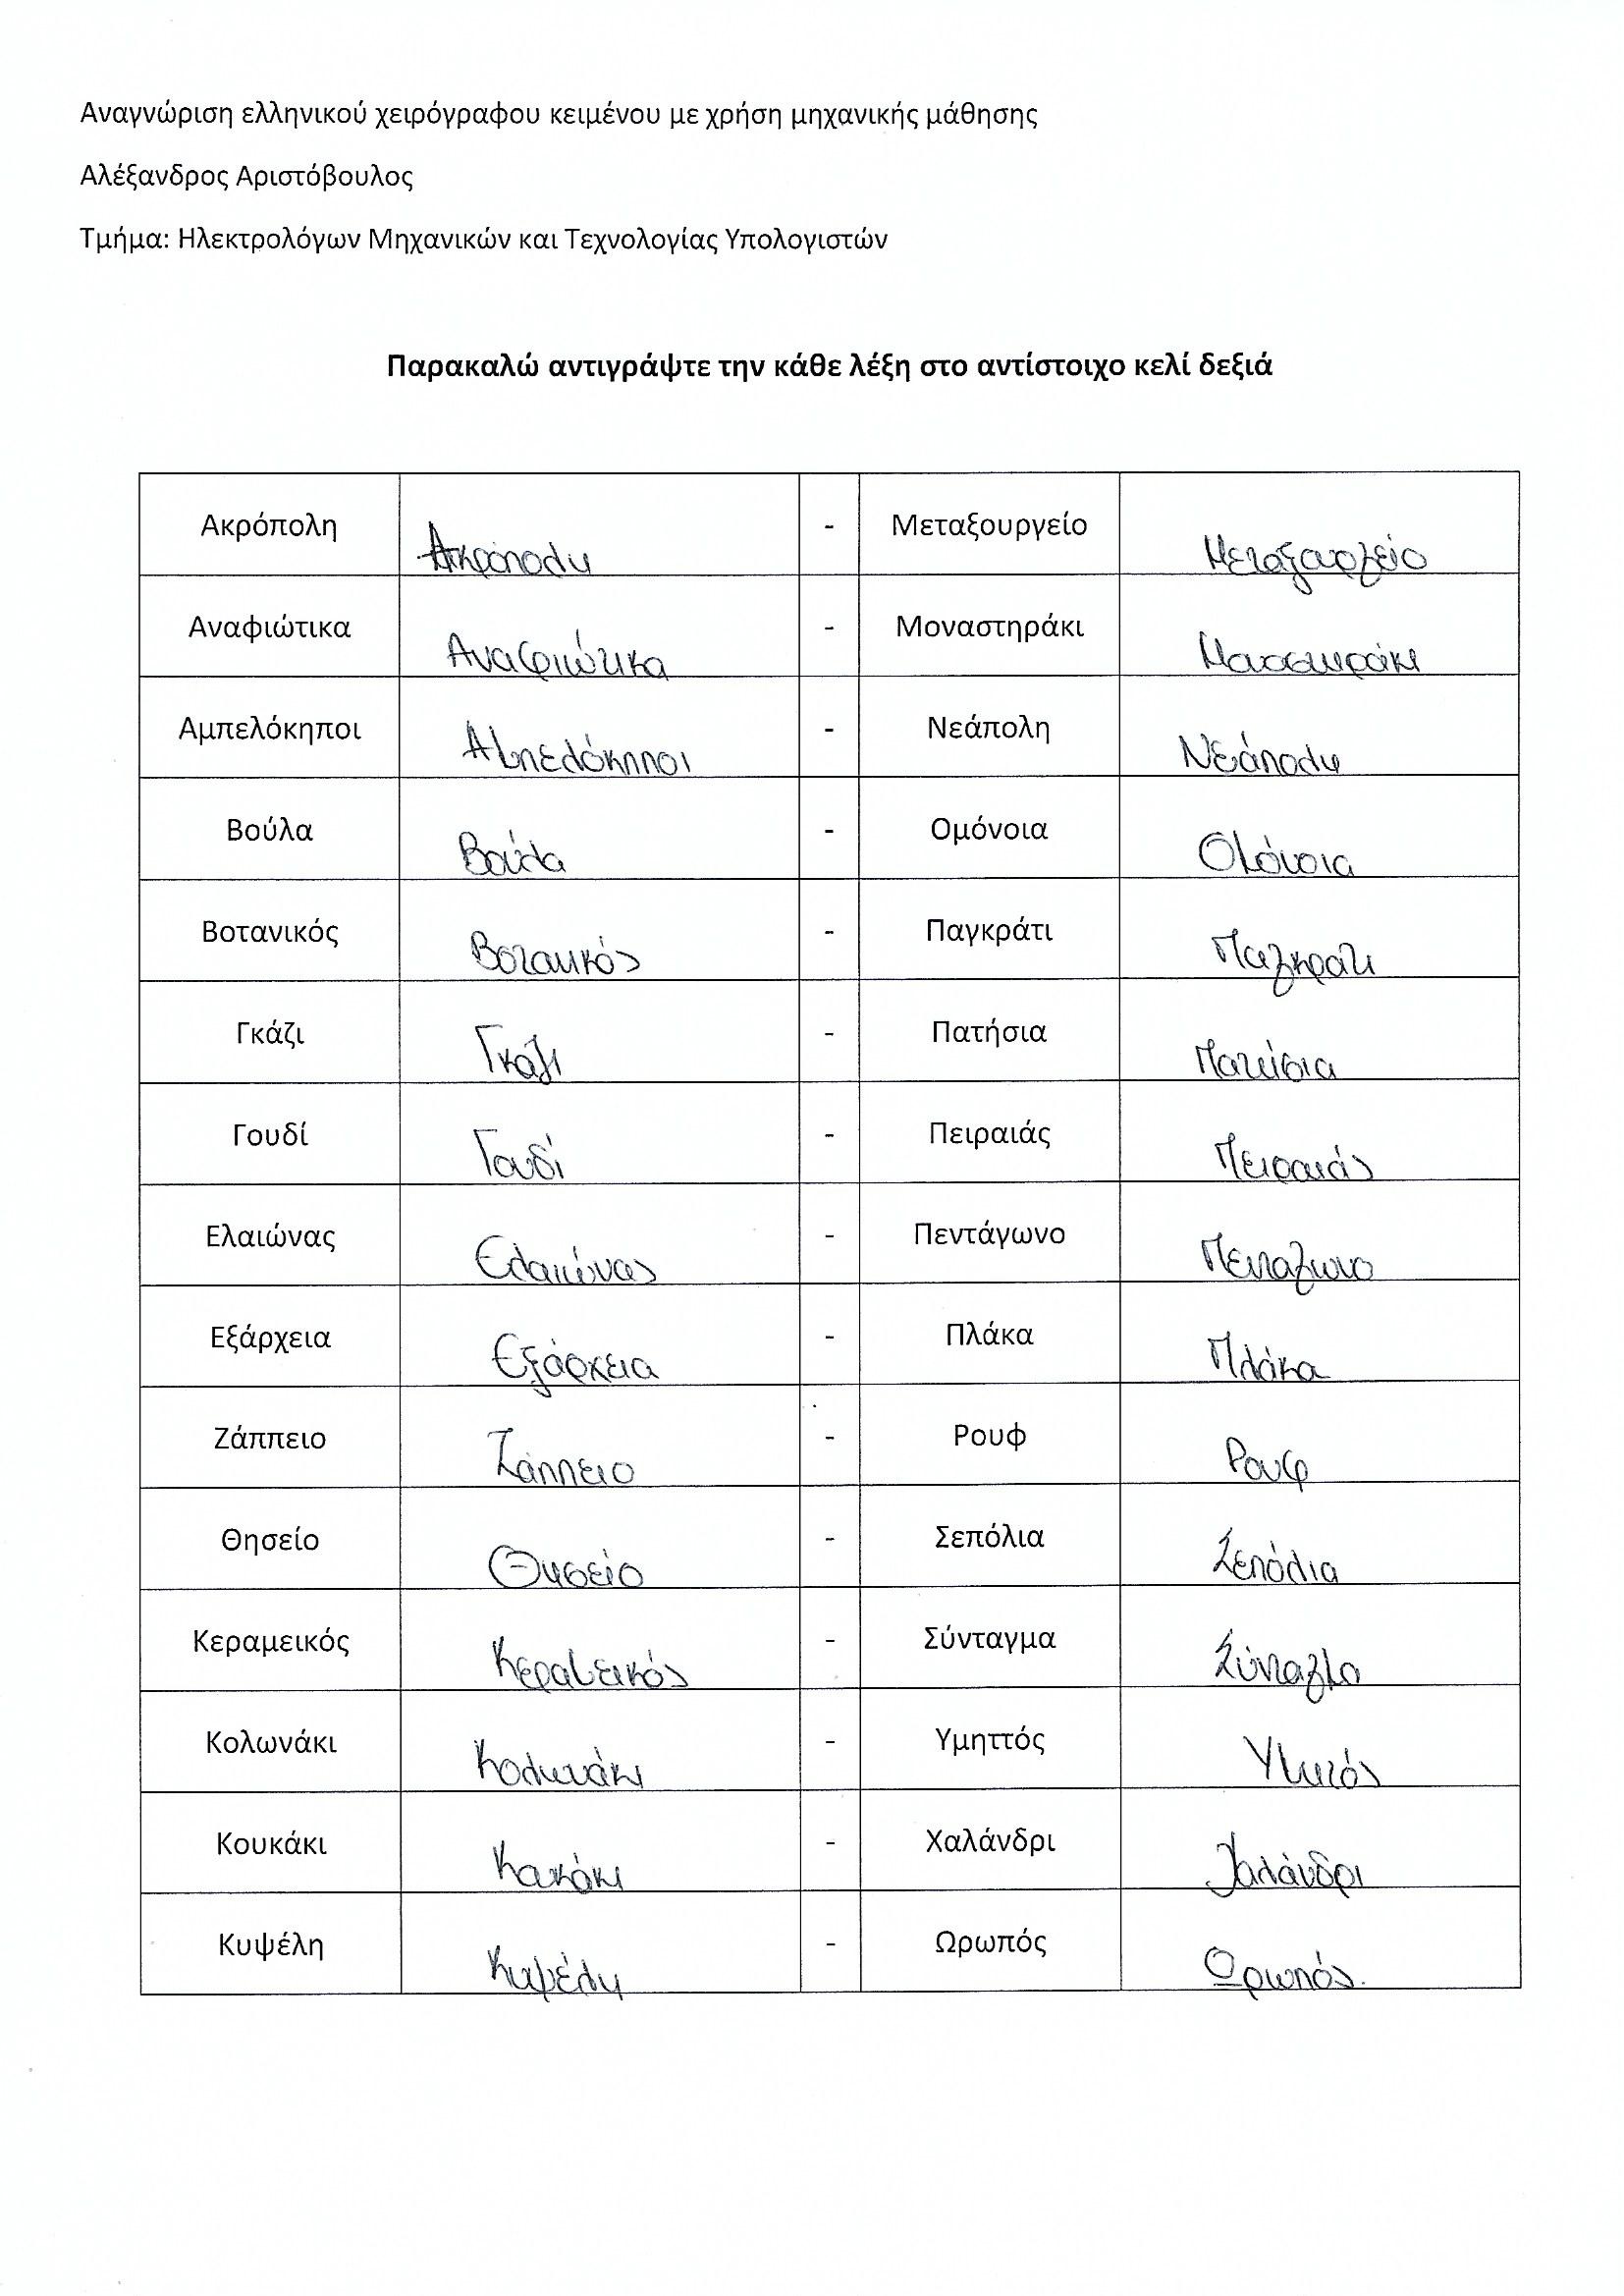 Αναγνώριση ελληνικού χειρόγραφου κειμένου με χρήση μηχανικής μάθησης
Αλέξανδρος Αριστόβουλος
Τμήμα: Ηλεκτρολόγων Μηχανικών και Τεχνολογίας Υπολογιστών
Παρακαλώ αντιγράψτε την κάθε λέξη στο αντίστοιχο κελί δεξιά
Ακρόπολη Ακρόπολη - Μεταξουργείο Μεταξουργείο
Αναφιώτικα Αναφιώτικα - Μοναστηράκι Μοναστηράκι
Αμπελόκηποι Αμπελόκηποι - Νεάπολη Νεάπολη
Βούλα Βούλα - Ομόνοια Ομόνοια
Βοτανικός Βοτανικός - Παγκράτι Παγκράτι
Γκάζι Γκάζι - Πατήσια Πατήσια
Γουδί Γουδί - Πειραιάς Πειραιάς
Ελαιώνας Ελαιώνας - Πεντάγωνο Πεντάγωνο
Εξάρχεια Εξάρχεια - Πλάκα Πλάκα
Ζάππειο Ζάππειο - Ρουφ Ρουφ
Θησείο Θησείο - Σεπόλια Σεπόλια
Κεραμεικός Κεραμεικός - Σύνταγμα Σύνταγμα
Κολωνάκι Κολωνάκι - Υμηττός Υμηττός
Κουκάκι Κουκάκι - Χαλάνδρι Χαλάνδρι
Κυψέλη Κυψέλη - Ωρωπός Ωρωπός.